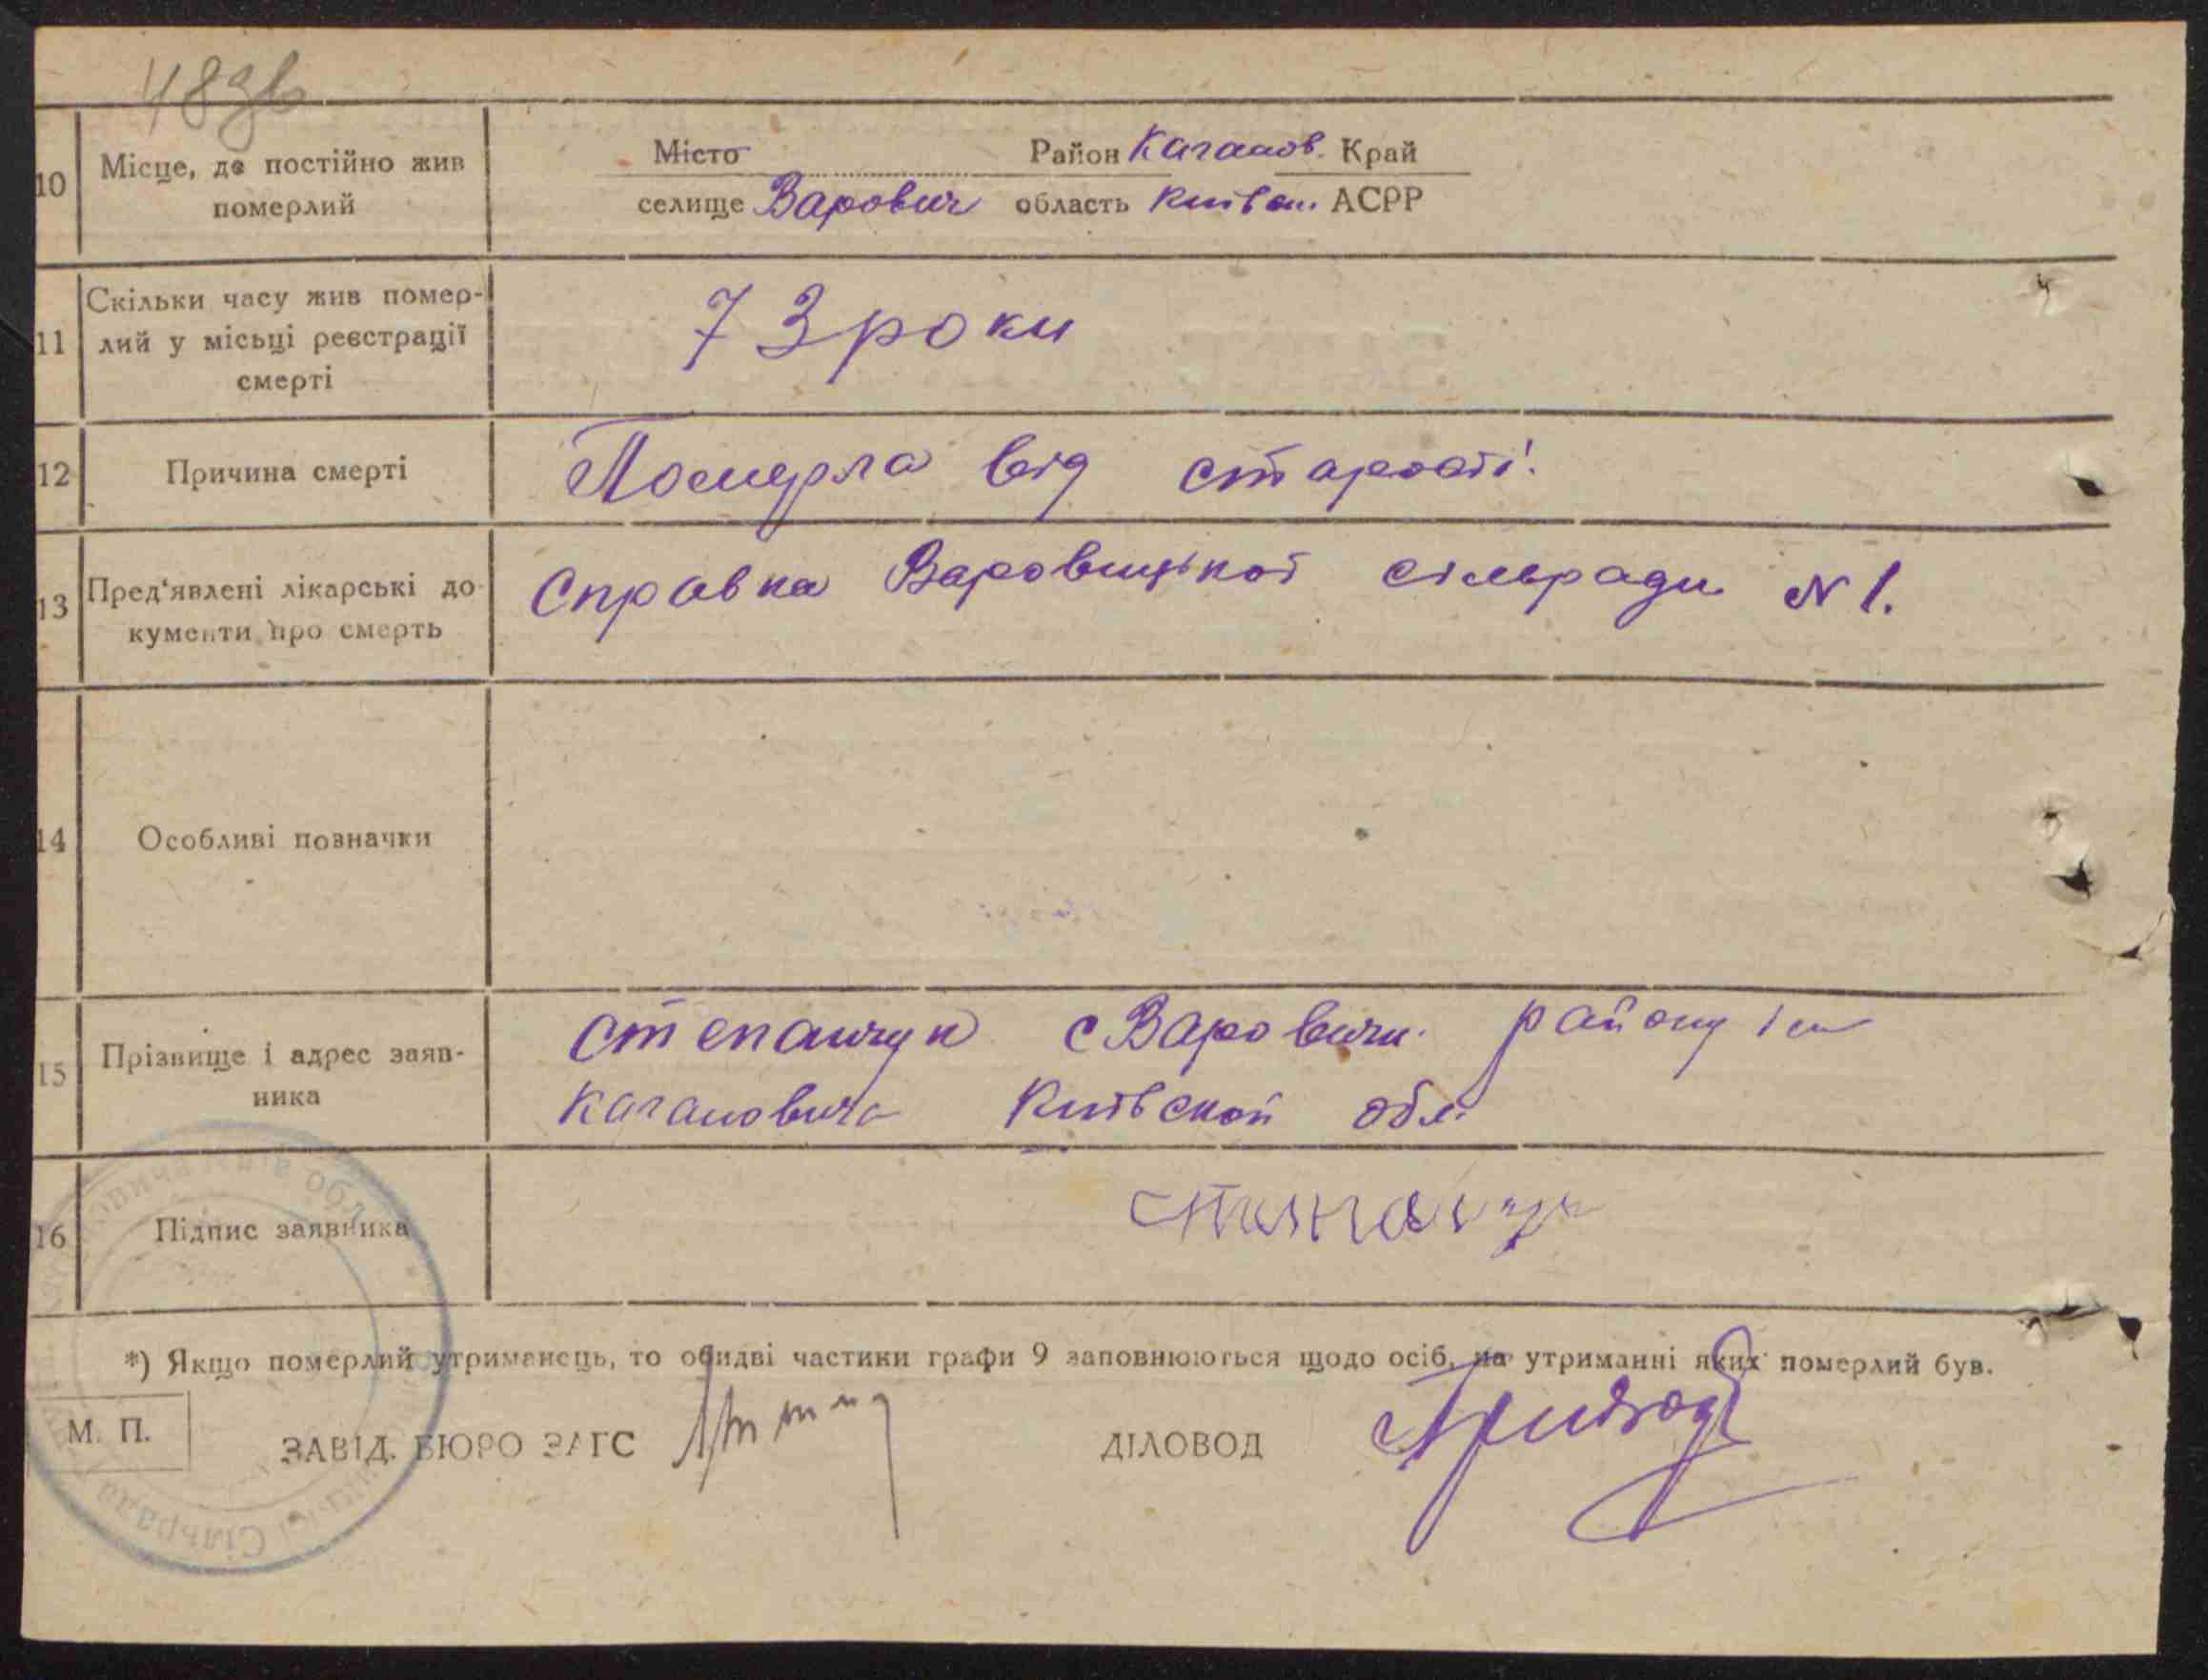 48зв
10 Місце, де постійно жив померлий
Місто Район Каганов. Край
селище Варович область Київськ. АСРР
11 Скільки часу жив помер-
лий у місьці реєстрації
смерті
73 роки
12 Причина смерті
Померла від старості.
13 Пред'явлені лікарські до-
кументи про смерть
Справка Варовицької сільради N 1.
14 Особливі позначки
15 Прізвище і адрес заяв-
ника
Степанчук с Варовичи. району ім
Кагановича Київской обл.
16 Підпис заявника
*) Якщо померлий утриманець, то обидві частики графи 9 заповнюються щодо осіб, на утриманні яких померлий був.
М. П. ЗАВІД. БЮРО ЗАГС ДІЛОВОД
Сільрада